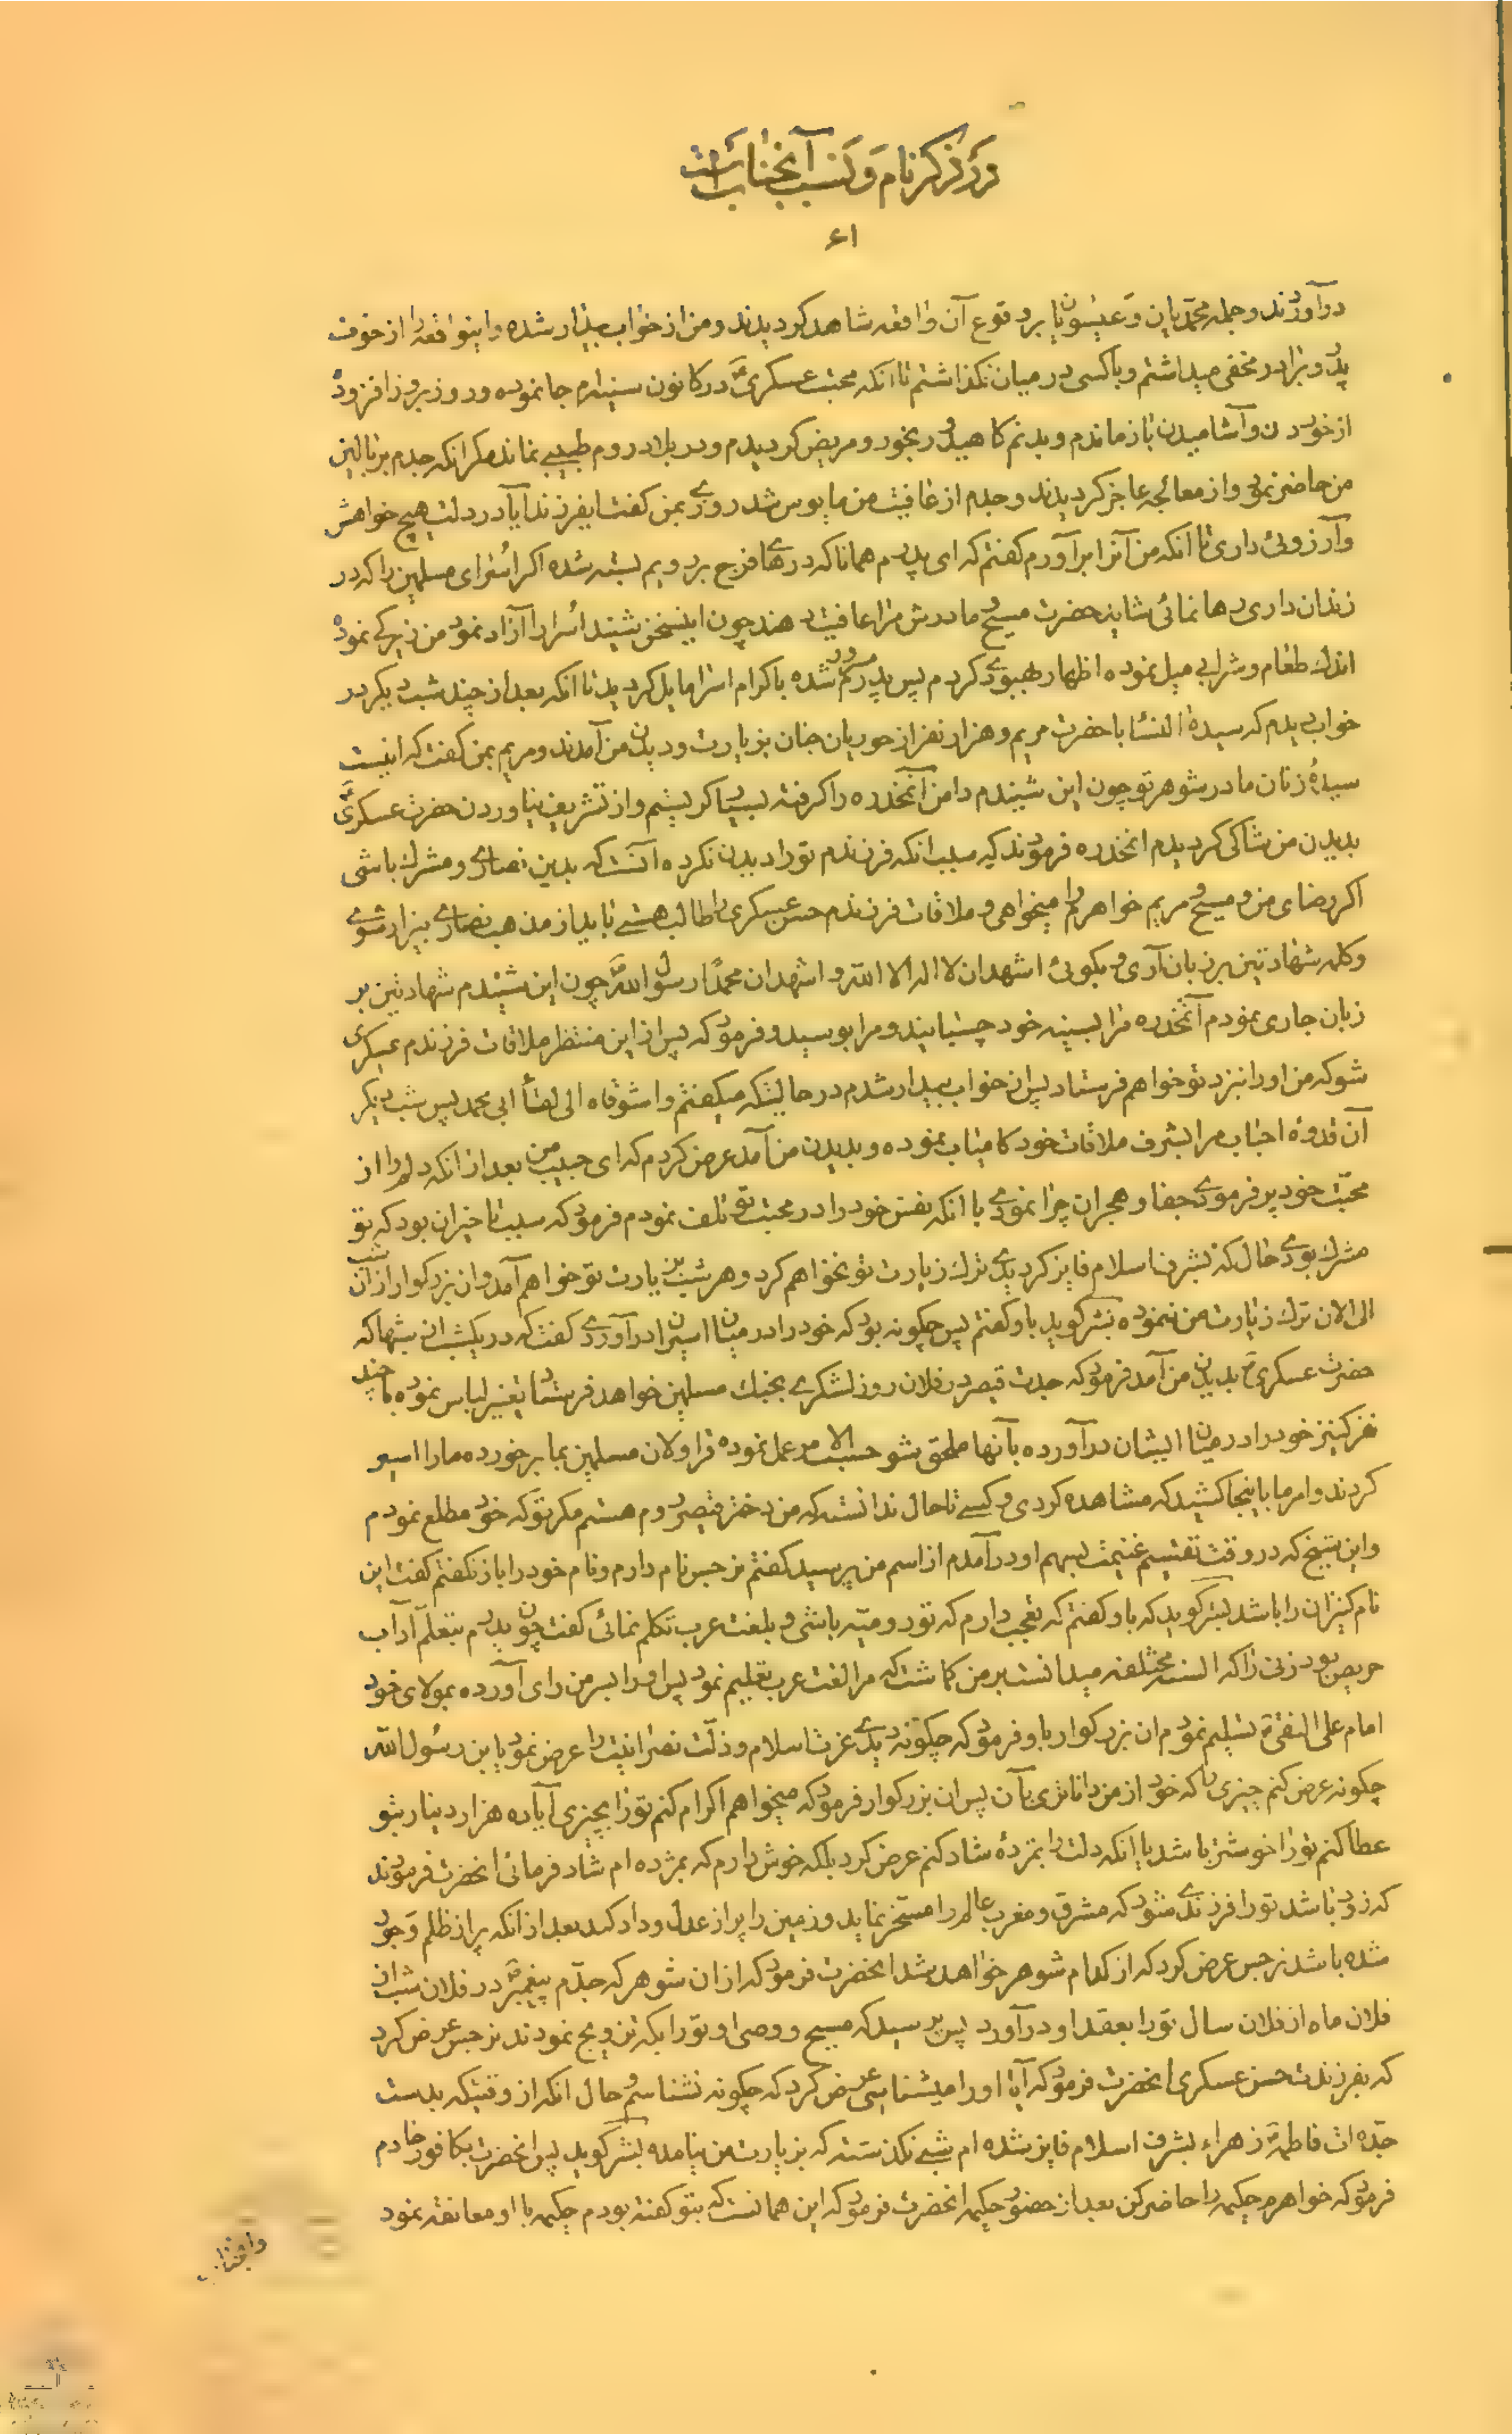 در ذکر نام و نسب آنجناب است
۶۱
درآوردند و جمله محمدیان و عیسویان بر وقوع آن واقعه شاهد گردیدند و من از خواب بیدار شده و اینواقعه را از خوف
پدر و برادر مخفی میداشتم و با کسی در میان نگذاشتم تا انکه محبت عسکری در کانون سینه‌ام جا نموده و روز بروز افزود
از خوردن و آشامیدن باز ماندم و بدنم کاهید و رنجور و مریض گردیدم و در بلاد روم طبیبی نماند مگر انکه جدم بر بالین
من حاضر نمود و از معالجه عاجز گردیدند و جدم از عافیت من مایوس شد روزی بمن گفت ایفرزند آیا در دلت هیچ خواهش
و آرزوئی داری تا انکه من آنرا برآورم گفتم که ای پدرم همانا که درهای فرج برویم بسته شده اگر اسرای مسلمین را که در
زندان داری رها نمائی شاید حضرت مسیح و مادرش مرا عافیت دهند چون اینسخن شنید اسرا را آزاد نمود من زیرکی نموده
اندک طعام و شرابی میل نموده اظهار بهبودی کردم پس پدرم مسرور شده باکرام اسرا مایل گردید تا انکه بعد از چند شب دیگر در
خواب دیدم که سیدة النسا با حضرت مریم و هزار نفر از حوریان جنان بزیارت و دیدن من آمدند و مریم بمن گفت که اینست
سیدهٔ زنان مادر شوهر تو چون این شنیدم دامن آنمخدره را گرفته بسیار گریستم و از تشریف نیاوردن حضرت عسکری
بدیدن من شاکی گردیدم انمخدره فرمودند که سبب انکه فرزندم تو را دیدن نکرده آنست که بدین نصاری و مشرک باشی
اگر رضای من و مسیح و مریم خواهرم را میخواهی و ملاقات فرزندم حسن عسکری را طالب هستی باید از مذهب نصاری بیزار شوی
و کلمه شهادتین بر زبان آری و بگوئی اشهد ان لا اله الا الله و اشهد ان محمدا رسول الله چون این شنیدم شهادتین بر
زبان جاری نمودم آنمخدره مرا بسینه خود چسبانید و مرا بوسید و فرمود که پس از این منتظر ملاقات فرزندم عسکری
شو که من او را نزد تو خواهم فرستاد پس از خواب بیدار شدم در حالیتکه میگفتم واشوقاه الی لقاء ابی محمد پس شب دیگر
آن قدوهٔ احباب مرا بشرف ملاقات خود کامیاب نموده و بدیدن من آمد عرض کردم که ای حبیب من بعد از انکه دلم را از
محبت خود پر فرمودی جفا و هجران چرا نمودی با انکه نفس خود را در محبت تو تلف نمودم فرمود که سبب تاخیر ان بود که تو
مشرک بودی حال که بشرف اسلام فایز گردیدی ترک زیارت تو نخواهم کرد و هر شب بزیارت تو خواهم آمد و ان بزرگوار از ان شب
الی الان ترک زیارت من ننموده بشر گوید باو گفتم پس چگونه بود که خود را در میان اسیران درآوردی گفت که در یکشب از شبها که
حضرت عسکری بدیدن من آمد فرمود که جدت قیصر در فلان روز لشکری بجنگ مسلمین خواهد فرستاد تغییر لباس نموده با چند
نفر کنیز خود را در میان ایشان درآورده بآنها ملحق شو حسب الامر عمل نموده قراولان مسلمین بما برخورده ما را اسیر
کردند و امر ما باینجا کشید که مشاهده کردی و کسی تا حال ندانسته که من دختر قیصر روم هستم مگر تو که خود مطلع نمودم
و این شیخ که در وقت تقسیم غنیمت بسهم او درآمدم از اسم من پرسید گفتم نرجس نام دارم و نام خود را باز نگفتم گفت این
نام کنیزان را باشد بشر گوید که باو گفتم که تعجب دارم که تو رومیه باشی و بلغت عرب تکلم نمائی گفت چون پدرم بتعلم آداب
حریص بود زنی را که السنه مختلفه میدانست بر من گماشت که مرا لغت عرب تعلیم نمود پس او را بسر من رای آورده بمولای خود
امام علی النقی تسلیم نمودم ان بزرگوار باو فرمود که چگونه دیدی عزت اسلام و ذلت نصرانیت را عرض نمود یابن رسول الله
چگونه عرض کنم چیزی را که خود از من داناتری بآن پس ان بزرگوار فرمود که میخواهم اکرام کنم تو را بچیزی آیا ده هزار دینار بتو
عطا کنم تو را خوشتر باشد یا انکه دلت را بمژدهٔ شاد کنم عرض کرد بلکه خوش دارم که بمژده‌ام شاد فرمائی انحضرت فرمودند
که زود باشد تو را فرزندی شود که مشرق و مغرب عالم را مسخر نماید و زمین را پر از عدل و داد کند بعد از انکه پر از ظلم و جور
شده باشد نرجس عرض کرد که از کدام شوهر خواهد شد انحضرت فرمود که از ان شوهر که جدم پیغمبر در فلان شب از
فلان ماه از فلان سال تو را بعقد او درآورد پس پرسید که مسیح و وصی او تو را بکه تزویج نمودند نرجس عرض کرد
که بفرزندت حسن عسکری انحضرت فرمود که آیا او را میشناسی عرض کرد که چگونه نشناسم و حال انکه از وقتیکه بدست
جده ات فاطمه زهراء بشرف اسلام فایز شده ام شبی نگذشته که بزیارت من نیامده بشر گوید پس انحضرت بکافور خادم
فرمود که خواهرم حکیمه را حاضر کن بعد از حضور حکیمه انحضرت فرمود که این همانست که بتو گفته بودم حکیمه با او معانقه نمود